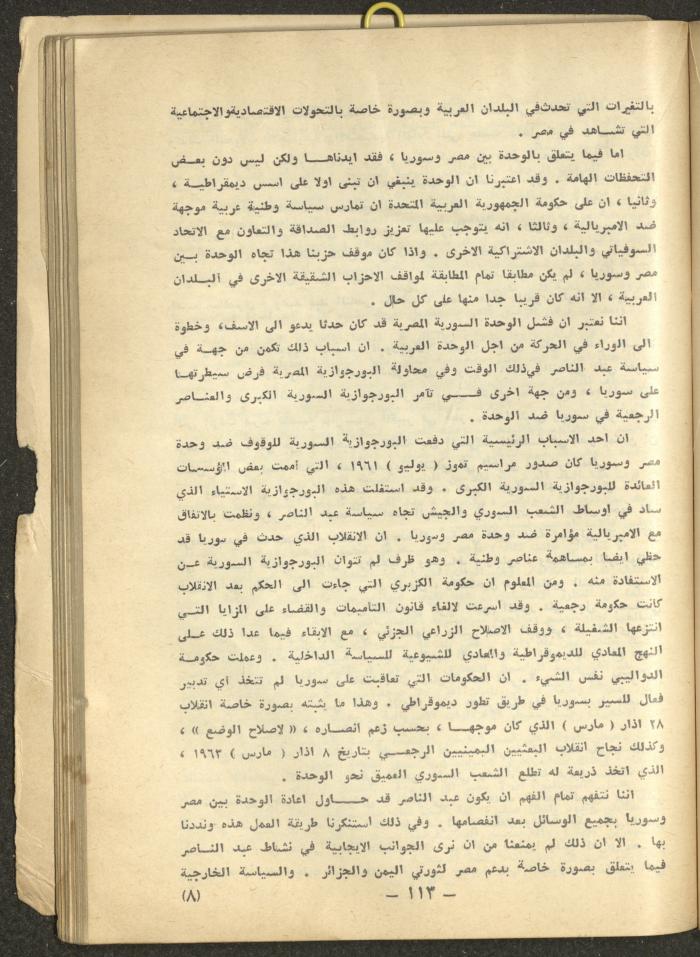 بالتغيرات التي تحدث في البلدان العربية وبصورة خاصة بالتحولات الاقتصادية والاجتماعية
التي تشـاهد في مصر .
اما فيما يتعلق بالوحدة بين مصر وسوريا ، فقد ايدناهـا ولكن ليس دون بعـض
التحفظات الهامة . وقد اعتبرنا ان الوحدة ينبغي ان تبنى اولا على اسس ديمقراطيـة ،
وثانيا ، ان على حكومة الجمهورية العربية المتحدة ان تمارس سياسة وطنية عربية موجهة
ضد الامبريالية ، وثالثا ، انه يتوجب عليها تعزيز روابط الصداقة والتعاون مع الاتحاد
السوفياتي والبلدان الاشتراكية الاخرى . واذا كان موقف حزبنا هذا تجاه الوحدة بـين
مصر وسوريا ، لم يكن مطابقا تمام المطابقة لمواقف الاحزاب الشقيقة الاخرى في البـلدان
العربية ، الا انه كان قريبا جدا منها على كل حال .
اننا نعتبر ان فشل الوحدة السورية المصرية قد كان حدثا يدعو الى الاسف، وخطوة
الى الوراء في الحركة من اجل الوحدة العربية . ان اسباب ذلك تكمن من جهـة في
سياسة عبد الناصر في ذلك الوقت وفي محاولة البورجوازية المصرية فرض سيطرتهـا
على سوريا ، ومن جهة اخرى فــي تآمر البورجوازية السورية الكبرى والعنـاصر
الرجعية في سوريا ضد الوحدة .
ان احد الاسباب الرئيسية التي دفعت البورجوازية السورية للوقوف ضد وحدة
مصر وسوريا كان صدور مراسيم تموز ( يوليو ) ١٩٦١ ، التي أممت بعض المؤسسات
العائدة للبورجوازية السورية الكبرى . وقد استغلت هذه البورجوازية الاستياء الذي
ساد في اوساط الشعب السوري والجيش تجاه سياسة عبد الناصر ، ونظمت بالاتفاق
مع الامبريالية مؤامرة ضد وحدة مصر وسوريا . ان الانقلاب الذي حدث في سوريا قد
حظي ايضا بمساهمة عناصر وطنية . وهو ظرف لم تتوان البورجوازية السورية عـن
الاستفادة منه . ومن المعلوم ان حكومة الكزبري التي جاءت الى الحكم بعد الانقلاب
كانت حكومة رجعية . وقد اسرعت لالغاء قانون التأميمات والقضاء على المزايا التـي
انتزعها الشغيلة ، ووقف الاصلاح الزراعي الجزئي ، مع الابقاء فيما عدا ذلك عـلى
النهج المعادي للديموقراطية والمعادي للشيوعية للسياسة الداخلية . وعملت حكومـة
الدواليبي نفس الشيء . ان الحكومات التي تعاقبت على سوريا لم تتخذ أي تدبير
فعال للسير بسوريا في طريق تطور ديموقراطي . وهذا ما يثبته بصورة خاصة انقلاب
٢٨ اذار ( مارس ) الذي كان موجهـا ، بحسب زعم انصـاره ، « لاصلاح الوضع » ،
وكذلك نجاح انقلاب البعثيين اليمينيين الرجعـي بتاريخ ٨ اذار ( مارس ) ١٩٦٣ ،
الذي اتخذ ذريعة له تطلع الشعب السوري العميق نحو الوحدة .
اننا نتفهم تمام الفهم ان يكون عبد الناصر قد حــاول اعادة الوحدة بين مصر
وسوريا بجميع الوسائل بعد انفصامها . وفي ذلك استنكرنا طريقة العمل هذه ونددنا
بها . الا ان ذلك لم يمنعنا من ان نرى الجوانب الايجابية في نشاط عبد النـاصر
فيما يتعلق بصورة خاصة بدعم مصر لثورتي اليمن والجزائر . والسياسة الخارجية
— ١١٣ —
(٨)